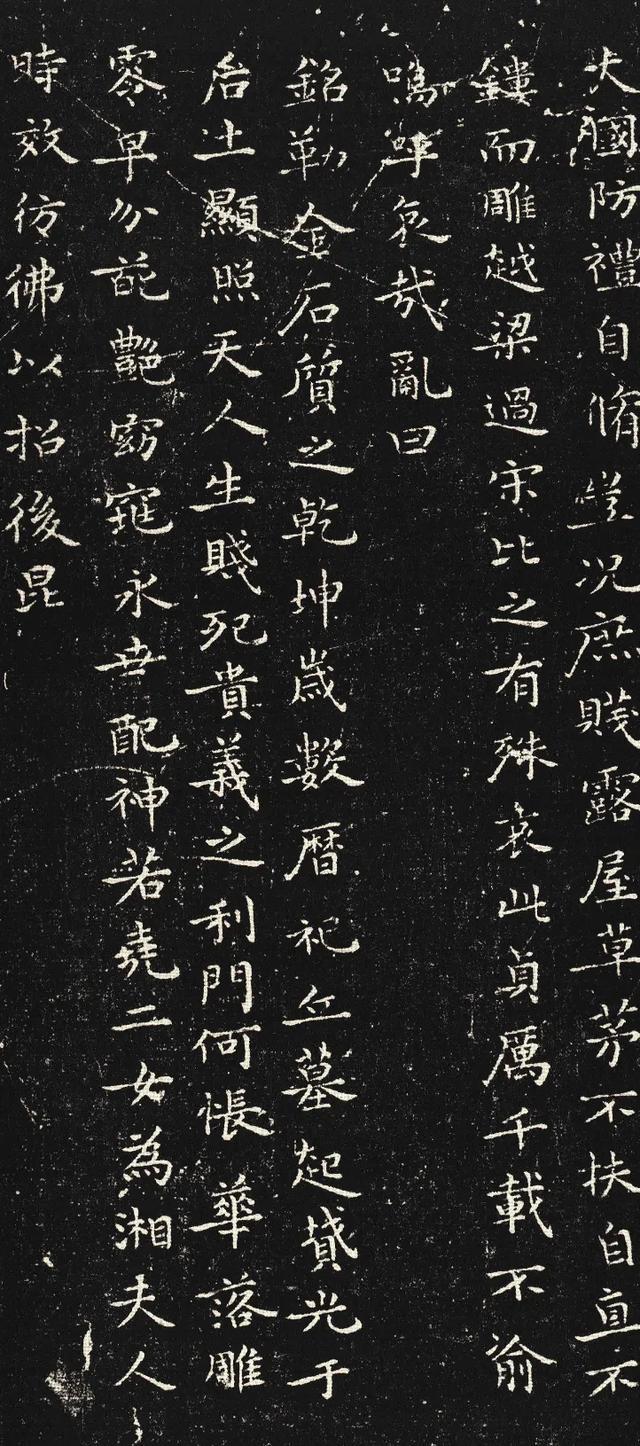 大國防禮自脩豈况庶賤露屋草茅不扶自直不
鏤而雕越梁過宋比之有殊哀此貞厲千載不渝
嗚呼哀哉亂曰
銘勒金石質之乾坤歲數曆祀丘墓起墳光于
后土顯照天人生賤死貴義之利門何悵華落雕
零早分葩艷窈窕永世配神若堯二女為湘夫人
時效彷彿以招後昆